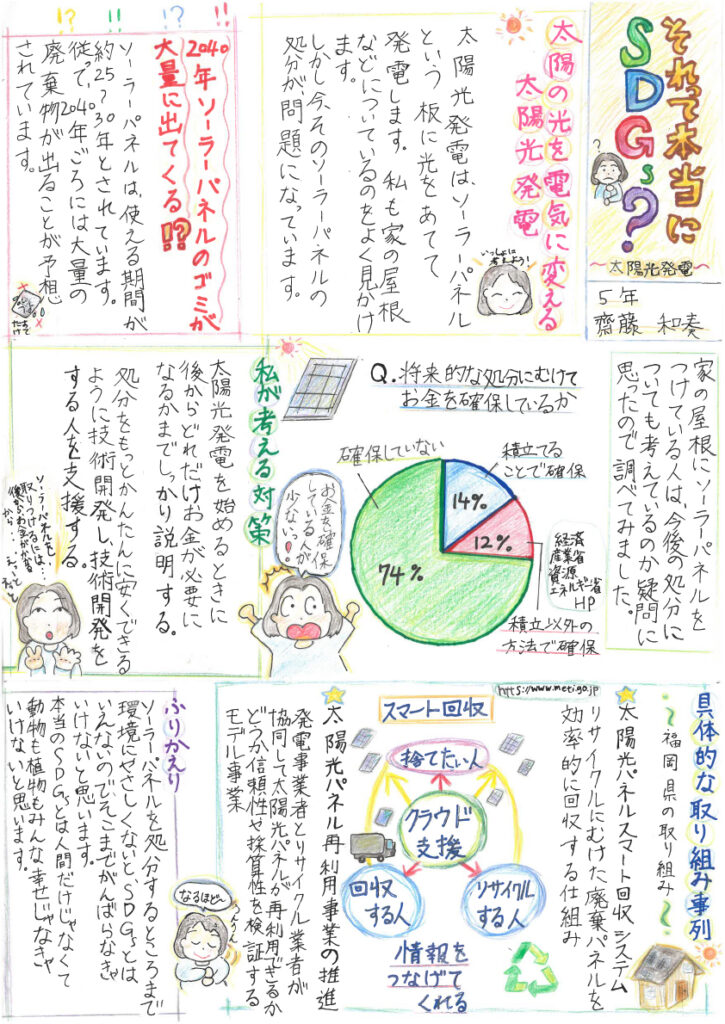 それって本当に
SDGs?
〜太陽光発電〜
5年
齋藤 和奏
太陽の光を電気に変える
太陽光発電
太陽光発電は、ソーラーパネル
という板に光をあてて
発電します。私も家の屋根
などについているのをよく見かけ
ます。
しかし今、そのソーラーパネルの
処分が問題になっています。
いっしょに
考えよう!
!?
!!
!?
2040年ソーラーパネルのゴミが
大量に出てくる!?
ソーラーパネルは、使える期間が
約25〜30年とされています。
従って、2040年ごろには大量の
廃棄物が出ることが予想
されています。
家の屋根にソーラーパネルを
つけている人は、今後の処分に
ついても考えているのか疑問に
思ったので調べてみました。
Q.将来的な処分にむけて
お金を確保しているか
確保していない
積立てる
ことで確保
14%
12%
74%
経済
産業省
資源
エネルギー省
HP
積立以外の
方法で確保
お金を確保
している人が
少ない!
私が考える対策
太陽光発電を始めるときに
後からどれだけお金が必要に
なるかまでしっかり説明する。
処分をもっとかんたんに安くできる
ように技術開発し、技術開発を
する人を支援する。
ソーラーパネルを
取りつけるには…
後からお金がかかる
から…
具体的な取り組み事列
〜福岡県の取り組み〜
太陽光パネルスマート回収システム
リサイクルにむけた廃棄パネルを
効率的に回収する仕組み
https://www.meti.go.jp
スマート回収
捨てたい人
クラウド
支援
回収
する人
リサイクル
する人
情報を
つなげて
くれる
太陽光パネル再利用事業の推進
発電事業者とリサイクル業者が
協同して太陽光パネルが再利用できるか
どうか信頼性や採算性を検証する
モデル事業
ふりかえり
ソーラーパネルを処分するところまで
環境にやさしくないとSDGsとは
いえないのでそこまでがんばらなきゃ
いけないと思います。
本当のSDGsとは人間だけじゃなくて
動物も植物もみんな幸せじゃなきゃ
いけないと思います。
なるほど〜
うんうん